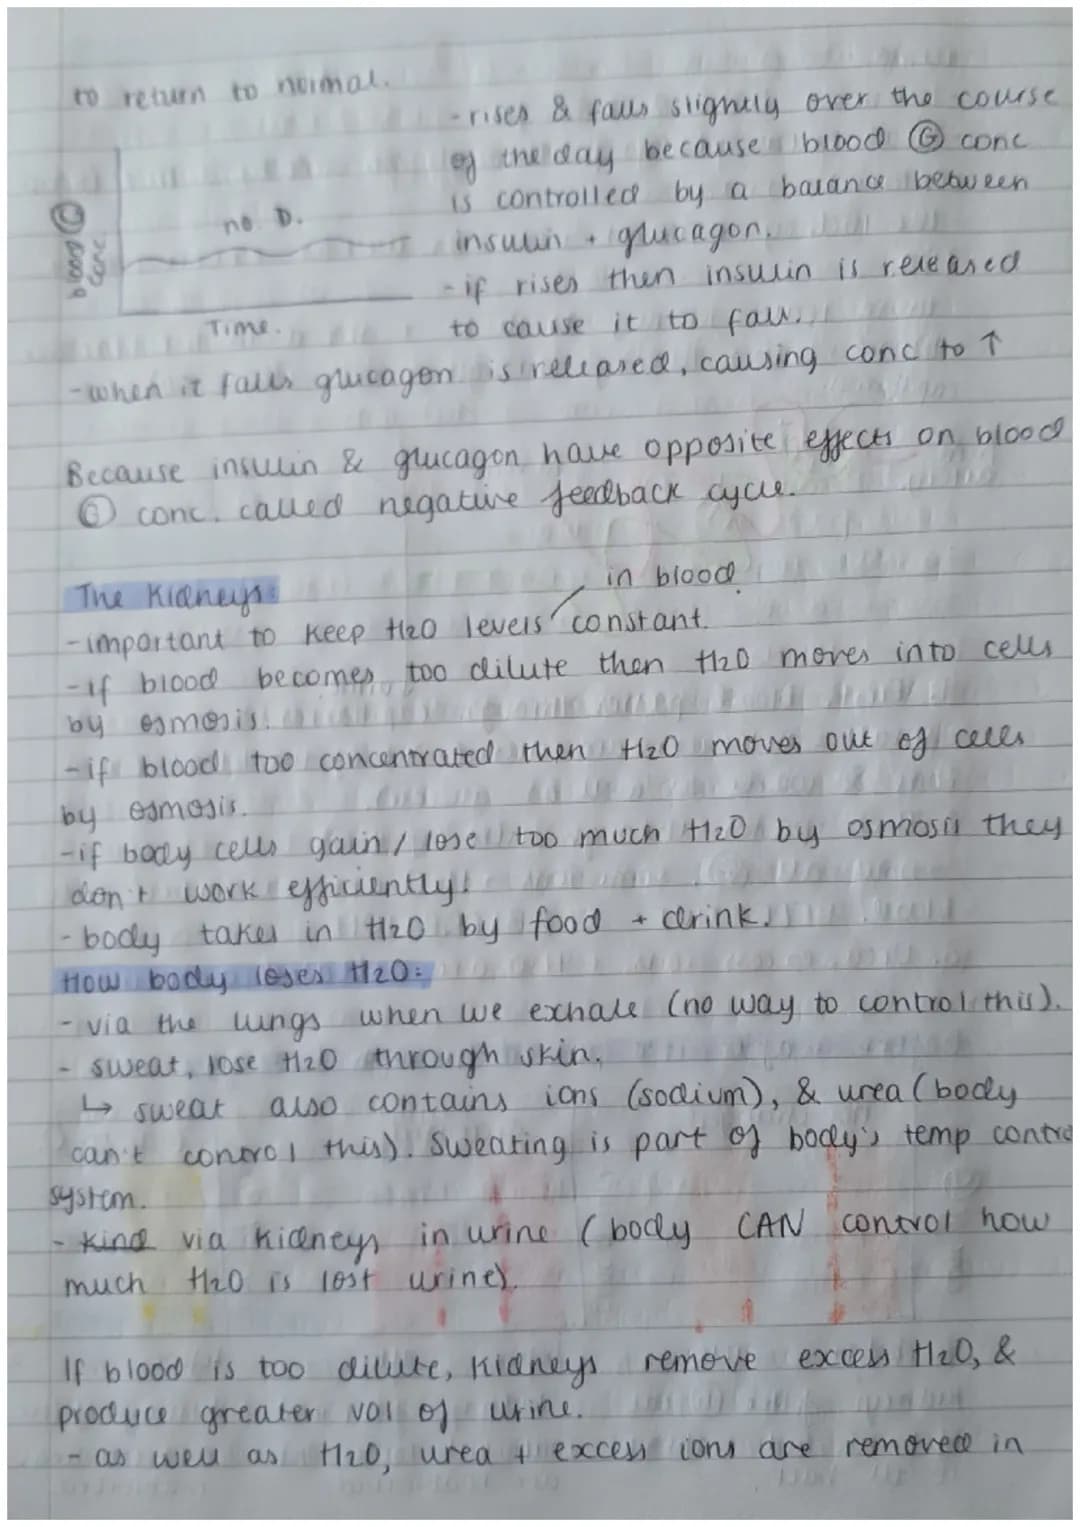 to return to normal.
- rises & falls slightly over the course
of the day because blood Ⓖ conc
is controlled by a balance between
insulin + glucagon.
- if rises then insulin is released
to cause it to fall.
blood Ⓖ
conc
no D.
Time.
- when it falls glucagon is released, causing conc to ↑
Because insulin & glucagon have opposite effects on blood
Ⓖ conc. called negative feedback cycle.
The Kidneys:
in blood
- important to keep H2O levels constant.
- if blood becomes too dilute then H2O moves into cells
by osmosis.
- if blood too concentrated then H2O moves out of cells
by osmosis.
- if body cells gain / lose too much H2O by osmosis they
don't work efficiently!
- body takes in H2O by food + drink.
How body loses H2O:
- via the lungs when we exhale (no way to control this).
- sweat, lose H2O through skin.
↳ sweat also contains ions (sodium), & urea (body
can't control this). Sweating is part of body's temp contro
system.
- kind via kidneys in urine (body CAN control how
much H2O is lost urine).
If blood is too dilute, kidneys remove excess H2O, &
produce greater vol of urine.
- as well as H2O, urea + excess ions are removed in